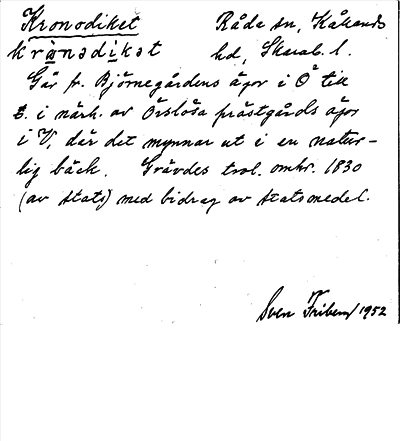 Kronodiket Råda sn, Kållands
krὼnɔdikət hd, Skarab. l.
Går fr. Björnegårdens ägor i Ö till
t. i närh. av Örslösa prästgårds ägor
i V, där det mynnar ut i en natur-
lig bäck. Grävdes trol. omkr. 1830
(av stats) med bidrag av statsmedel.
Sven Friberg 1952